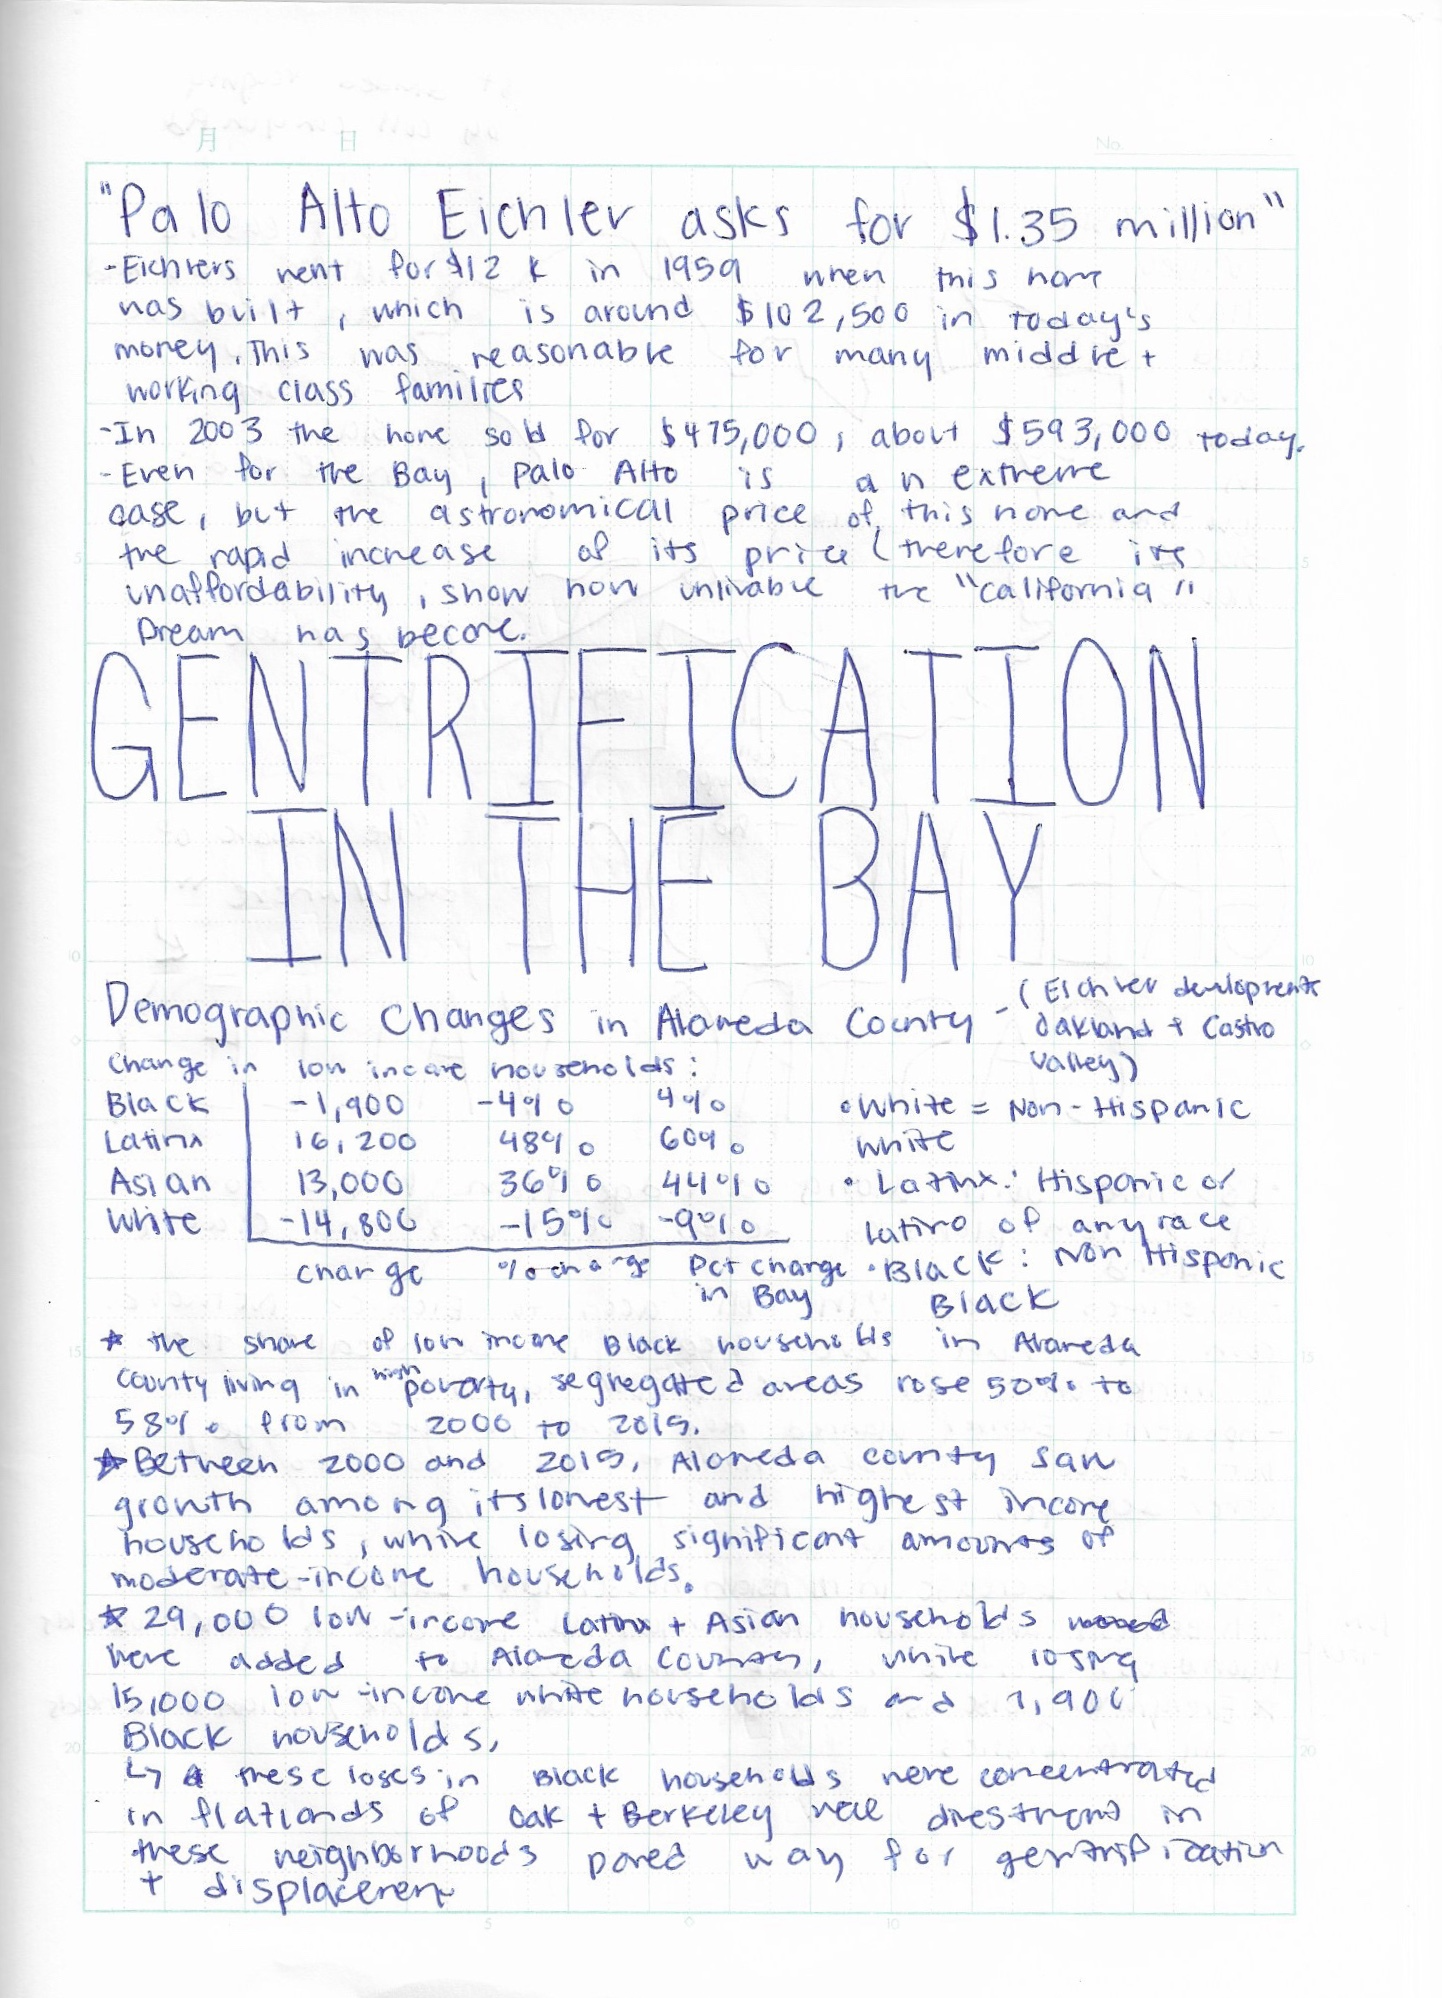 月 日 No.
"Palo Alto Eichler asks for $1.35 million"
-Eichlers went for $12 k in 1959 when this home
was built, which is around $102,500 in today's
money. This was reasonable for many middle +
working class families
-In 2003 the home sold for $475,000, about $593,000 today.
-Even for the Bay, Palo Alto is an extreme
case, but the astronomical price of this home and
the rapid increase of its price (therefore its
unaffordability, show how unlivable the "California"
Dream has become.
GENTRIFICATION
IN THE BAY
Demographic Changes in Alameda County - (Eichler developments
Oakland + Castro
Valley)
Change in low income households:
Black -1,900 -4% 4%
Latinx 16,200 48% 60%
Asian 13,000 36% 44%
White -14,800 -15% -9%
change % change Pct change
in Bay
• White = Non-Hispanic
White
• Latinx: Hispanic or
Latino of any race
• Black: Non Hispanic
Black
* the share of low income Black households in Alameda
County living in high poverty, segregated areas rose 50% to
58% from 2000 to 2015.
* Between 2000 and 2015, Alameda county saw
growth among its lowest and highest income
households, while losing significant amounts of
moderate-income households.
* 29,000 low-income Latinx + Asian households
were added to Alameda County, while losing
15,000 low-income white households and 1,900
Black households,
↳ these loses in Black households were concentrated
in flatlands of Oak + Berkeley were divestment in
these neighborhoods paved way for gentrification
+ displacement